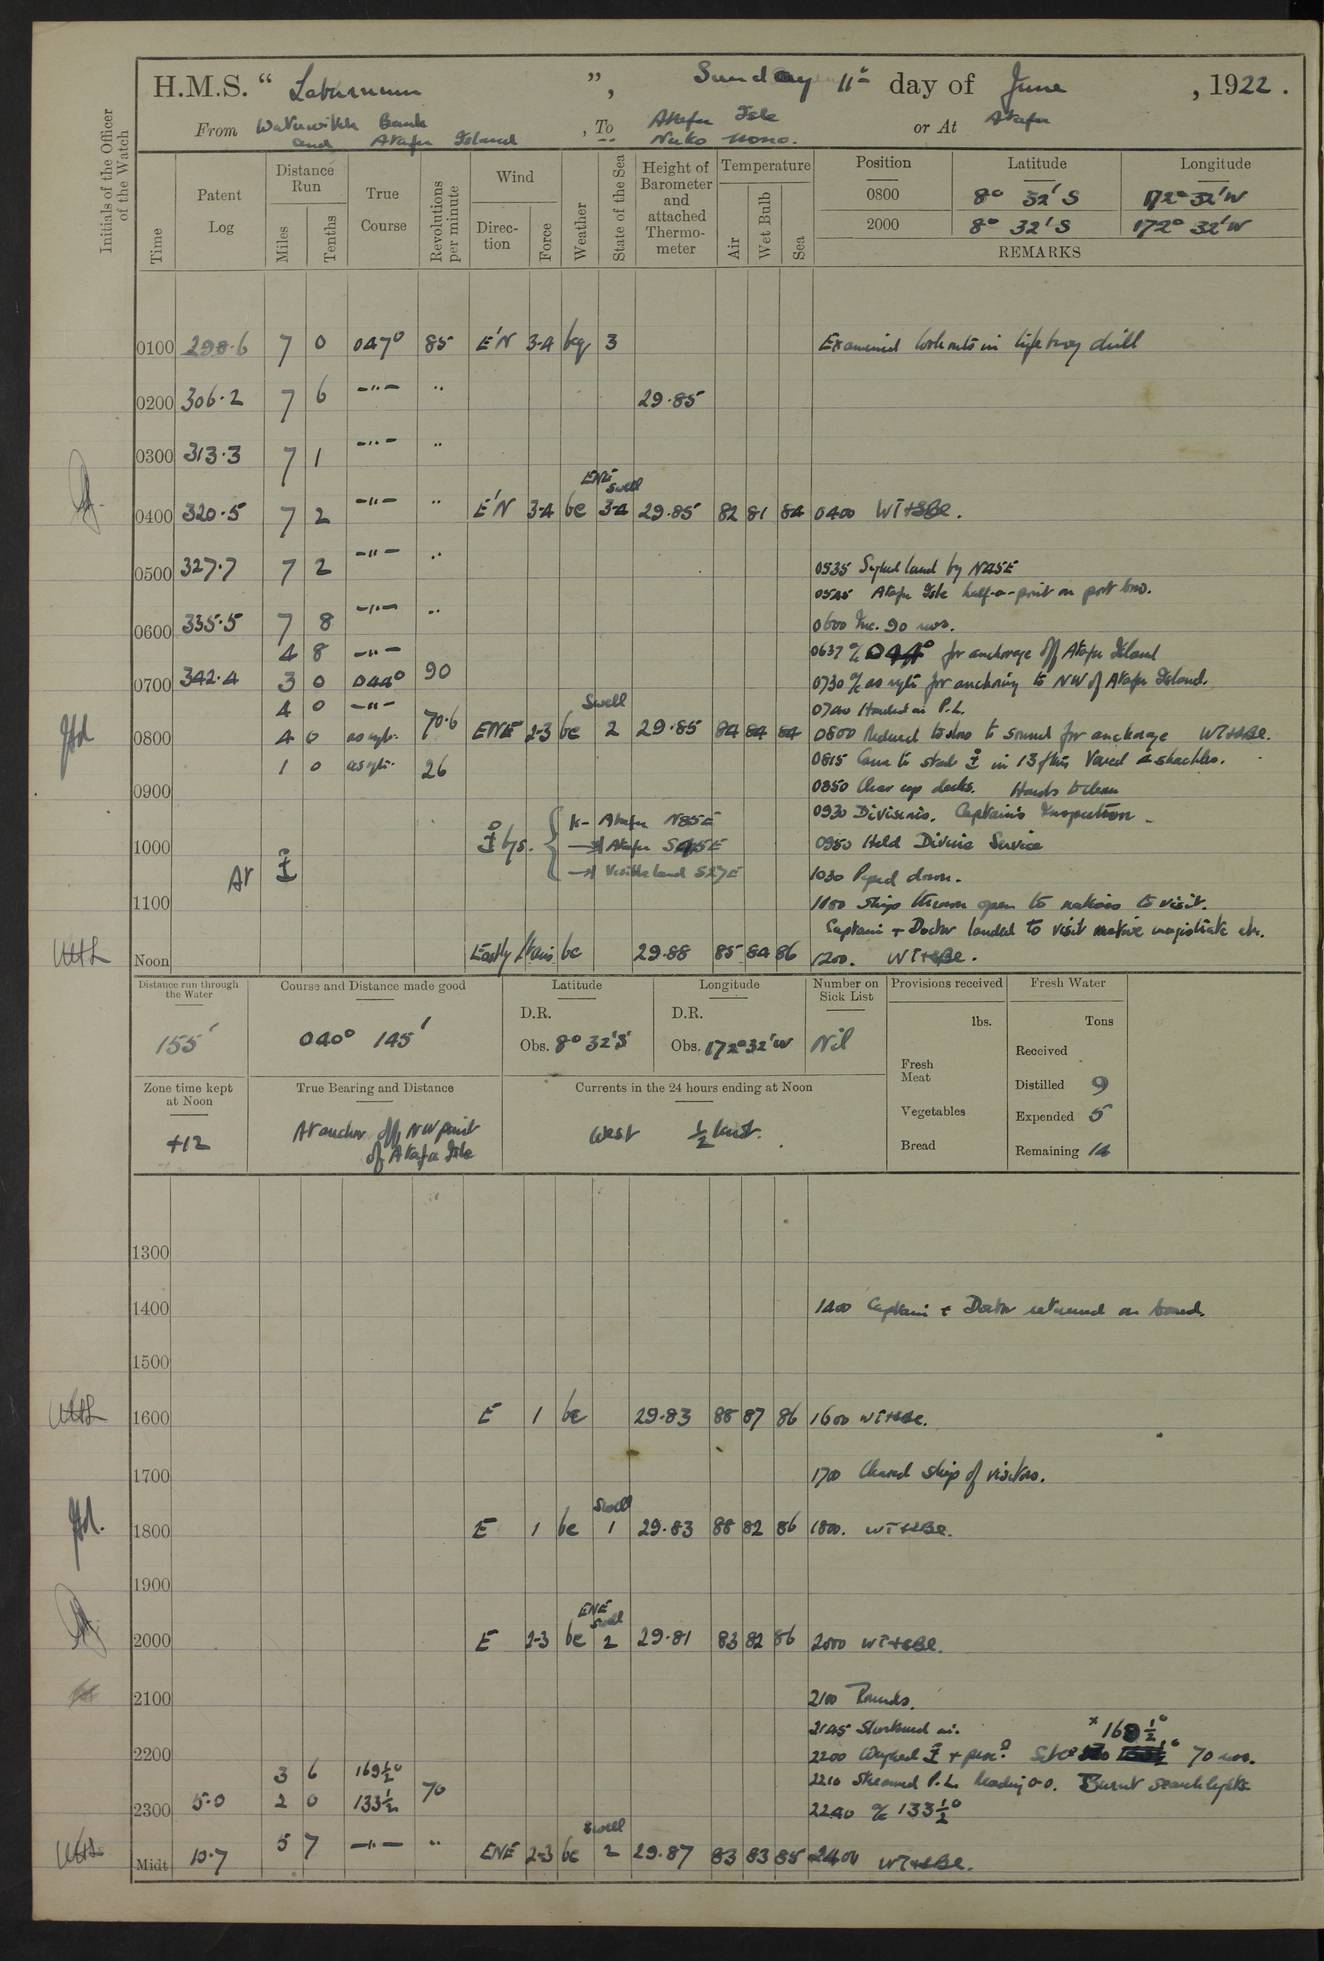 H.M.S. “ Laburnum ”, Sunday 11th day of June , 1922.
From Waterwitch Bank and Atafu Island , To Atafu Isle Nuko nono. or At Atafu
Initials of the Officer of the Watch
Time
Patent Log
Distance Run
Miles
Tenths
True Course
Revolutions per minute
Wind
Direction
Force
Weather
State of the Sea
Height of Barometer and attached Thermometer
Temperature
Air
Wet Bulb
Sea
Position Latitude Longitude
0800 8° 32' S 172° 32' W
2000 8° 32' S 172° 32' W
REMARKS
0100 298.6 7 0 047° 85 E'N 3-4 bq 3 Examined lookouts in lifebuoy drill
0200 306.2 7 6 -"- " 29.85
0300 313.3 7 1 -"- "
ENE Swell
0400 320.5 7 2 -"- " E'N 3-4 bc 3-4 29.85 82 81 84 0400 WT+SBc.
0500 327.7 7 2 -"- " 0535 Sighted land by N25E
0545 Atafu Isle half-a-point on port bow.
0600 335.5 7 8 -"- " 0600 Inc. 90 revs.
4 8 -"- 0637 a/c 044° for anchorage off Atafu Island
0700 342.4 3 0 044° 90 0730 a/c as reqte for anchoring to NW of Atafu Island.
4 0 -"- Swell 0740 Hauled in P.L.
0800 4 0 as reqte. 70.6 ENE 2-3 bc 2 29.85 84 84 84 0800 Reduced to slow to sound for anchorage WT+SBc.
1 0 as reqte. 26 0815 Came to starbd in 13 fms Veered 4 shackles.
0900 0850 Clear up decks. Hands to clean
0930 Divisions. Captain's Inspection
1000 bgs. Atafu N85E
Atafu S45E 0950 Held Divine Service
Visible land S27E 1030 Piped down.
At
1100 1100 Ships thrown open to natives to visit.
Captain + Doctor landed to visit native magistrate etc.
Noon Eastly bc 29.88 85 84 86 1200. WT+SBc.
Distance run through the Water
155'
Course and Distance made good
040° 145'
Latitude
D.R.
Obs. 8° 32' S
Longitude
D.R.
Obs. 172° 32' W
Number on Sick List
Nil
Provisions received
lbs.
Fresh Meat
Vegetables
Bread
Fresh Water
Tons
Received
Distilled 9
Expended 5
Remaining 14
Zone time kept at Noon
+12
True Bearing and Distance
At anchor off NW point of Atafu Isle
Currents in the 24 hours ending at Noon
West ½ knot.
1300
1400 1400 Captain + Doctor returned on board.
1500
1600 E 1 bc 29.83 88 87 86 1600 WT+SBc.
1700 1700 Cleared ship of visitors.
Swell
1800 E 1 bc 1 29.83 88 82 86 1800. WT+SBc.
1900
ENE Swell
2000 E 2-3 bc 2 29.81 83 82 86 2000 WT+SBc.
2100 2100 Rounds.
2145 Shortened in. x 169½°
2200 2200 Weighed + proc? S/c 70 revs.
3 6 169½° 2210 Streamed P.L. Reading 0.0. Burnt searchlights.
2300 5.0 2 0 133½ 70 2240 a/c 133½°
Swell
Midt 10.7 5 7 -"- " ENE 2-3 bc 2 29.87 83 83 85 2400 WT+SBc.